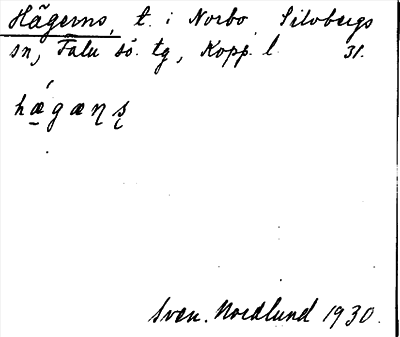 Hägerns, t. i Norbo Silvbergs
sn, Falu sö. tg, Kopp. l. 31.
hǽ̱gæɳʂ
Sven. Nordlund 1930.